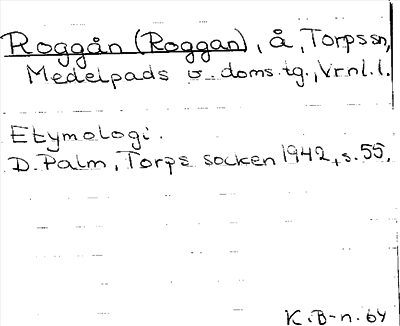 Roggån (Roggan), å, Torps sn,
Medelpads v. doms. tg., Vrnl. l.
Etymologi.
D. Palm, Torps socken 1942, s. 55.
K. B-n. 64